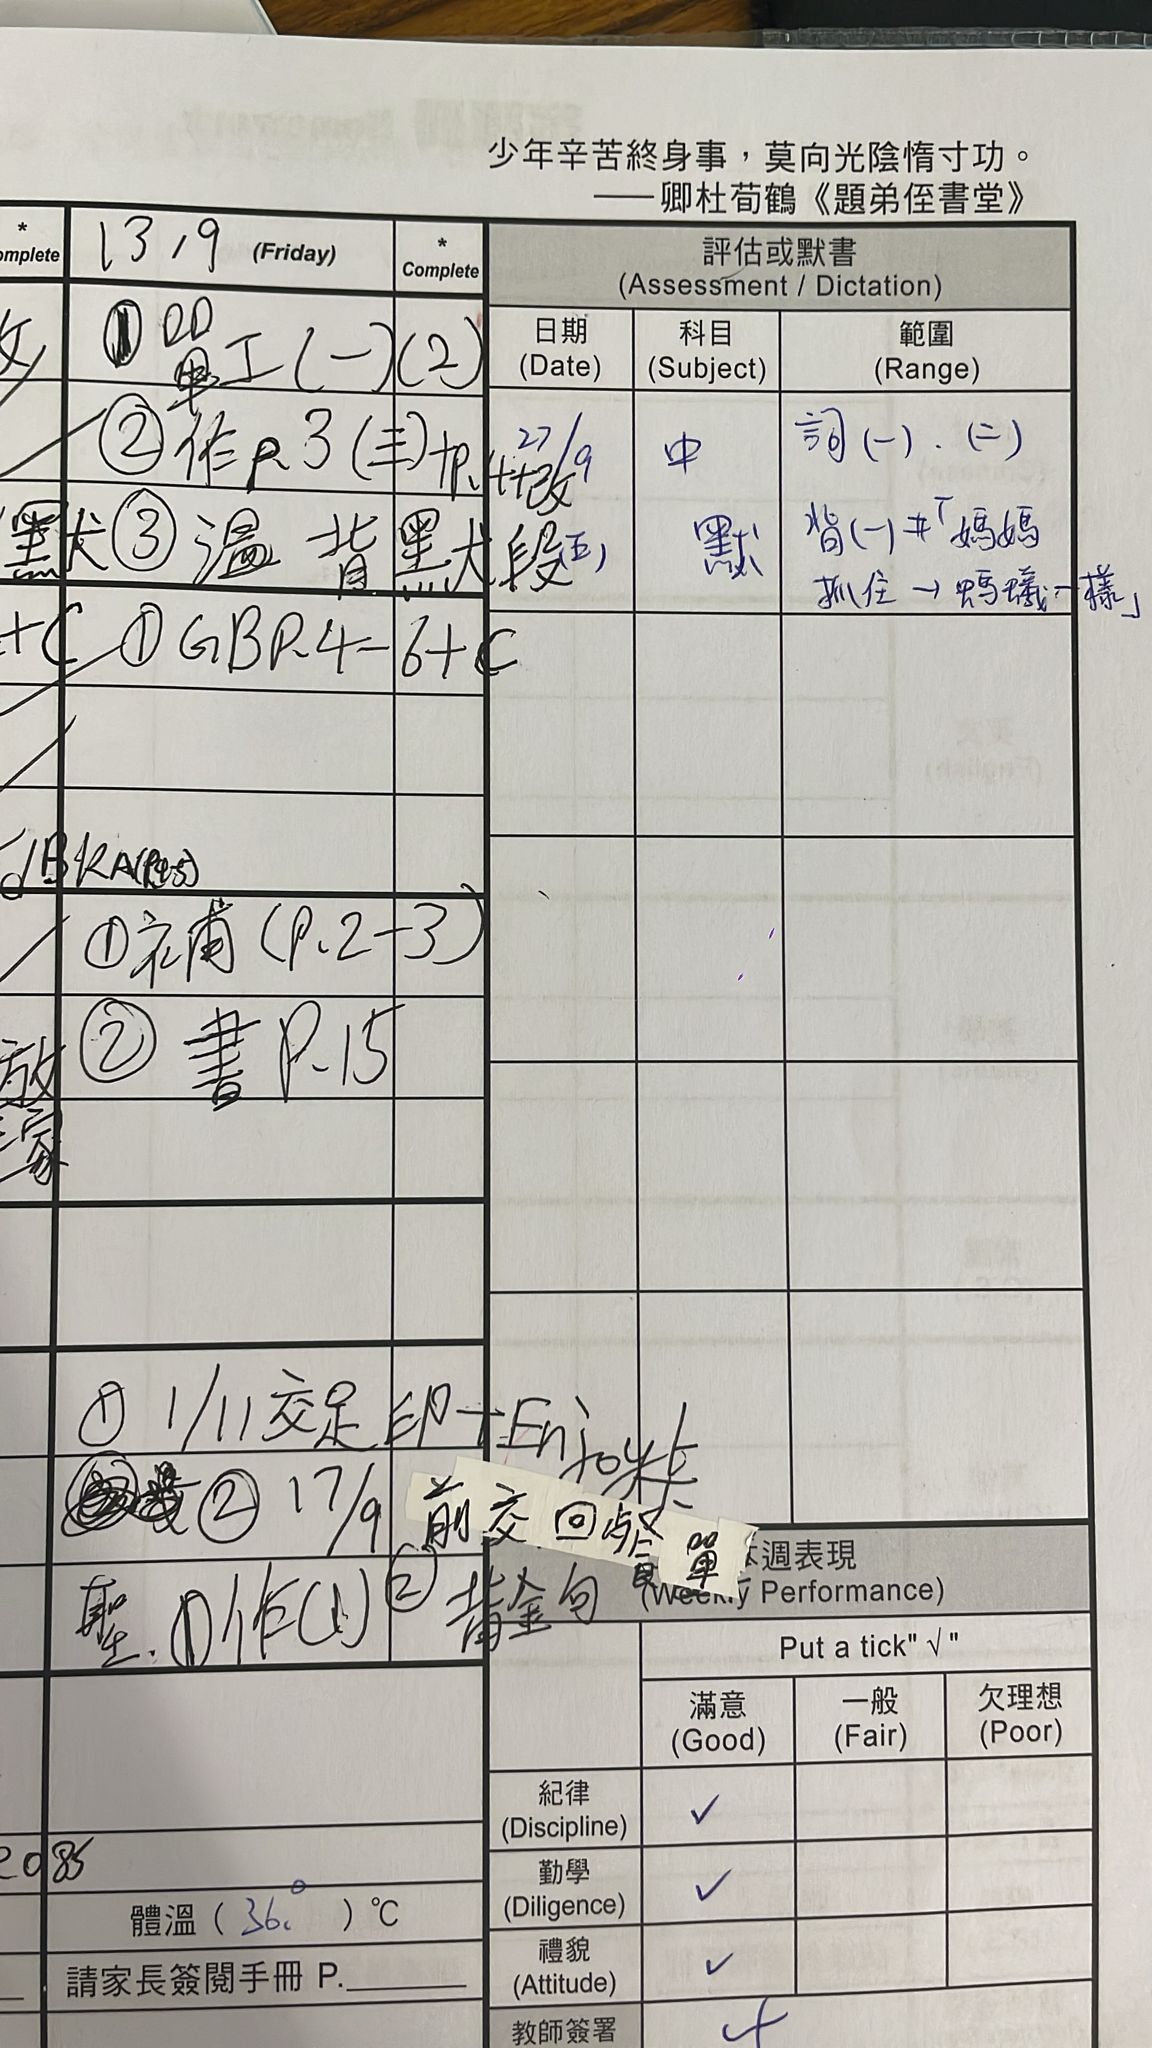 少年辛苦終身事，莫向光陰惰寸功。
——卿杜荀鶴《題弟侄書堂》
* Complete
13/9 (Friday)
* Complete
評估或默書
(Assessment / Dictation)
日期 (Date)
科目 (Subject)
範圍 (Range)
單工(一)(2)
② 作P.3(三)
改
27/9
中
詞(一).(二)
默 ③ 溫 背默段
默
背(一)#「媽媽
抓住→螞蟻一樣」
+C ① GBP.4-6+C
BKA
① 補(P.2-3)
② 書P.15
① 1/11交足印+Enjoy卡
② 17/9 前交回 單
聖.①作(1) ② 背金句
本週表現
(Weekly Performance)
Put a tick" √ "
滿意 (Good)
一般 (Fair)
欠理想 (Poor)
紀律 (Discipline) ✓
勤學 (Diligence) ✓
2085
體溫 ( 36.° ) ℃
禮貌 (Attitude) ✓
請家長簽閱手冊 P.
教師簽署